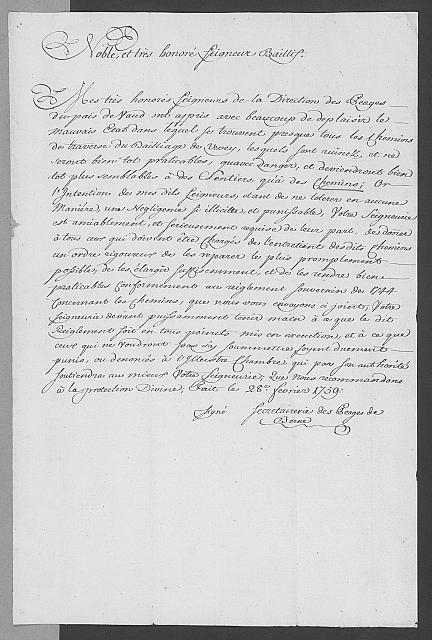 Noble, et très honoré Seigneur Baillif.
Mes très honorés Seigneurs de la Direction des Peages
du païs de Vaud ont appris avec beaucoup de deplaisir le
mauvais Etat dans lequel se trouvent presque tous les Chemins
de traverse du Bailliage de Vevey, lesquels sont ruinez, et ne
seront bien tot praticables, qu'avec danger, et deviendront bien
tot plus semblables à des Sentiers, qu'à des Chemins; Or
l'Intention de mes dits Seigneurs, étant de ne tolerer en aucune
Maniére, une Negligence si illicite, et punissable, Vôtre Seigneurie
est amiablement, et serieusement requise de leur part, de donner
à tous ceux qui doivent être Chargés de l'entretient desdits Chemins
un ordre rigoureux de les reparer le plus promplement
possible, de les élargir suffisemment, et de les rendre bien
praticables conformément au réglement souverain de 1744
concernant les Chemins, que nous vous envoyons cy joint; Vôtre
Seigneurie devant puissamment tenir main à ce que le dit
Réglement soit en tous points mis en execution, et à ce que
ceux qui ne voudront pas s'y soummettre soyent duement
punis, ou denoncés à l'Illustre Chambre, qui par son authorité
soutiendra au mieux Vôtre Seigneurie; Que Nous recommandons
à la protection Divine; Fait le 28e. fevrier 1759.
Signé Secretairerie des Peages de
Berne